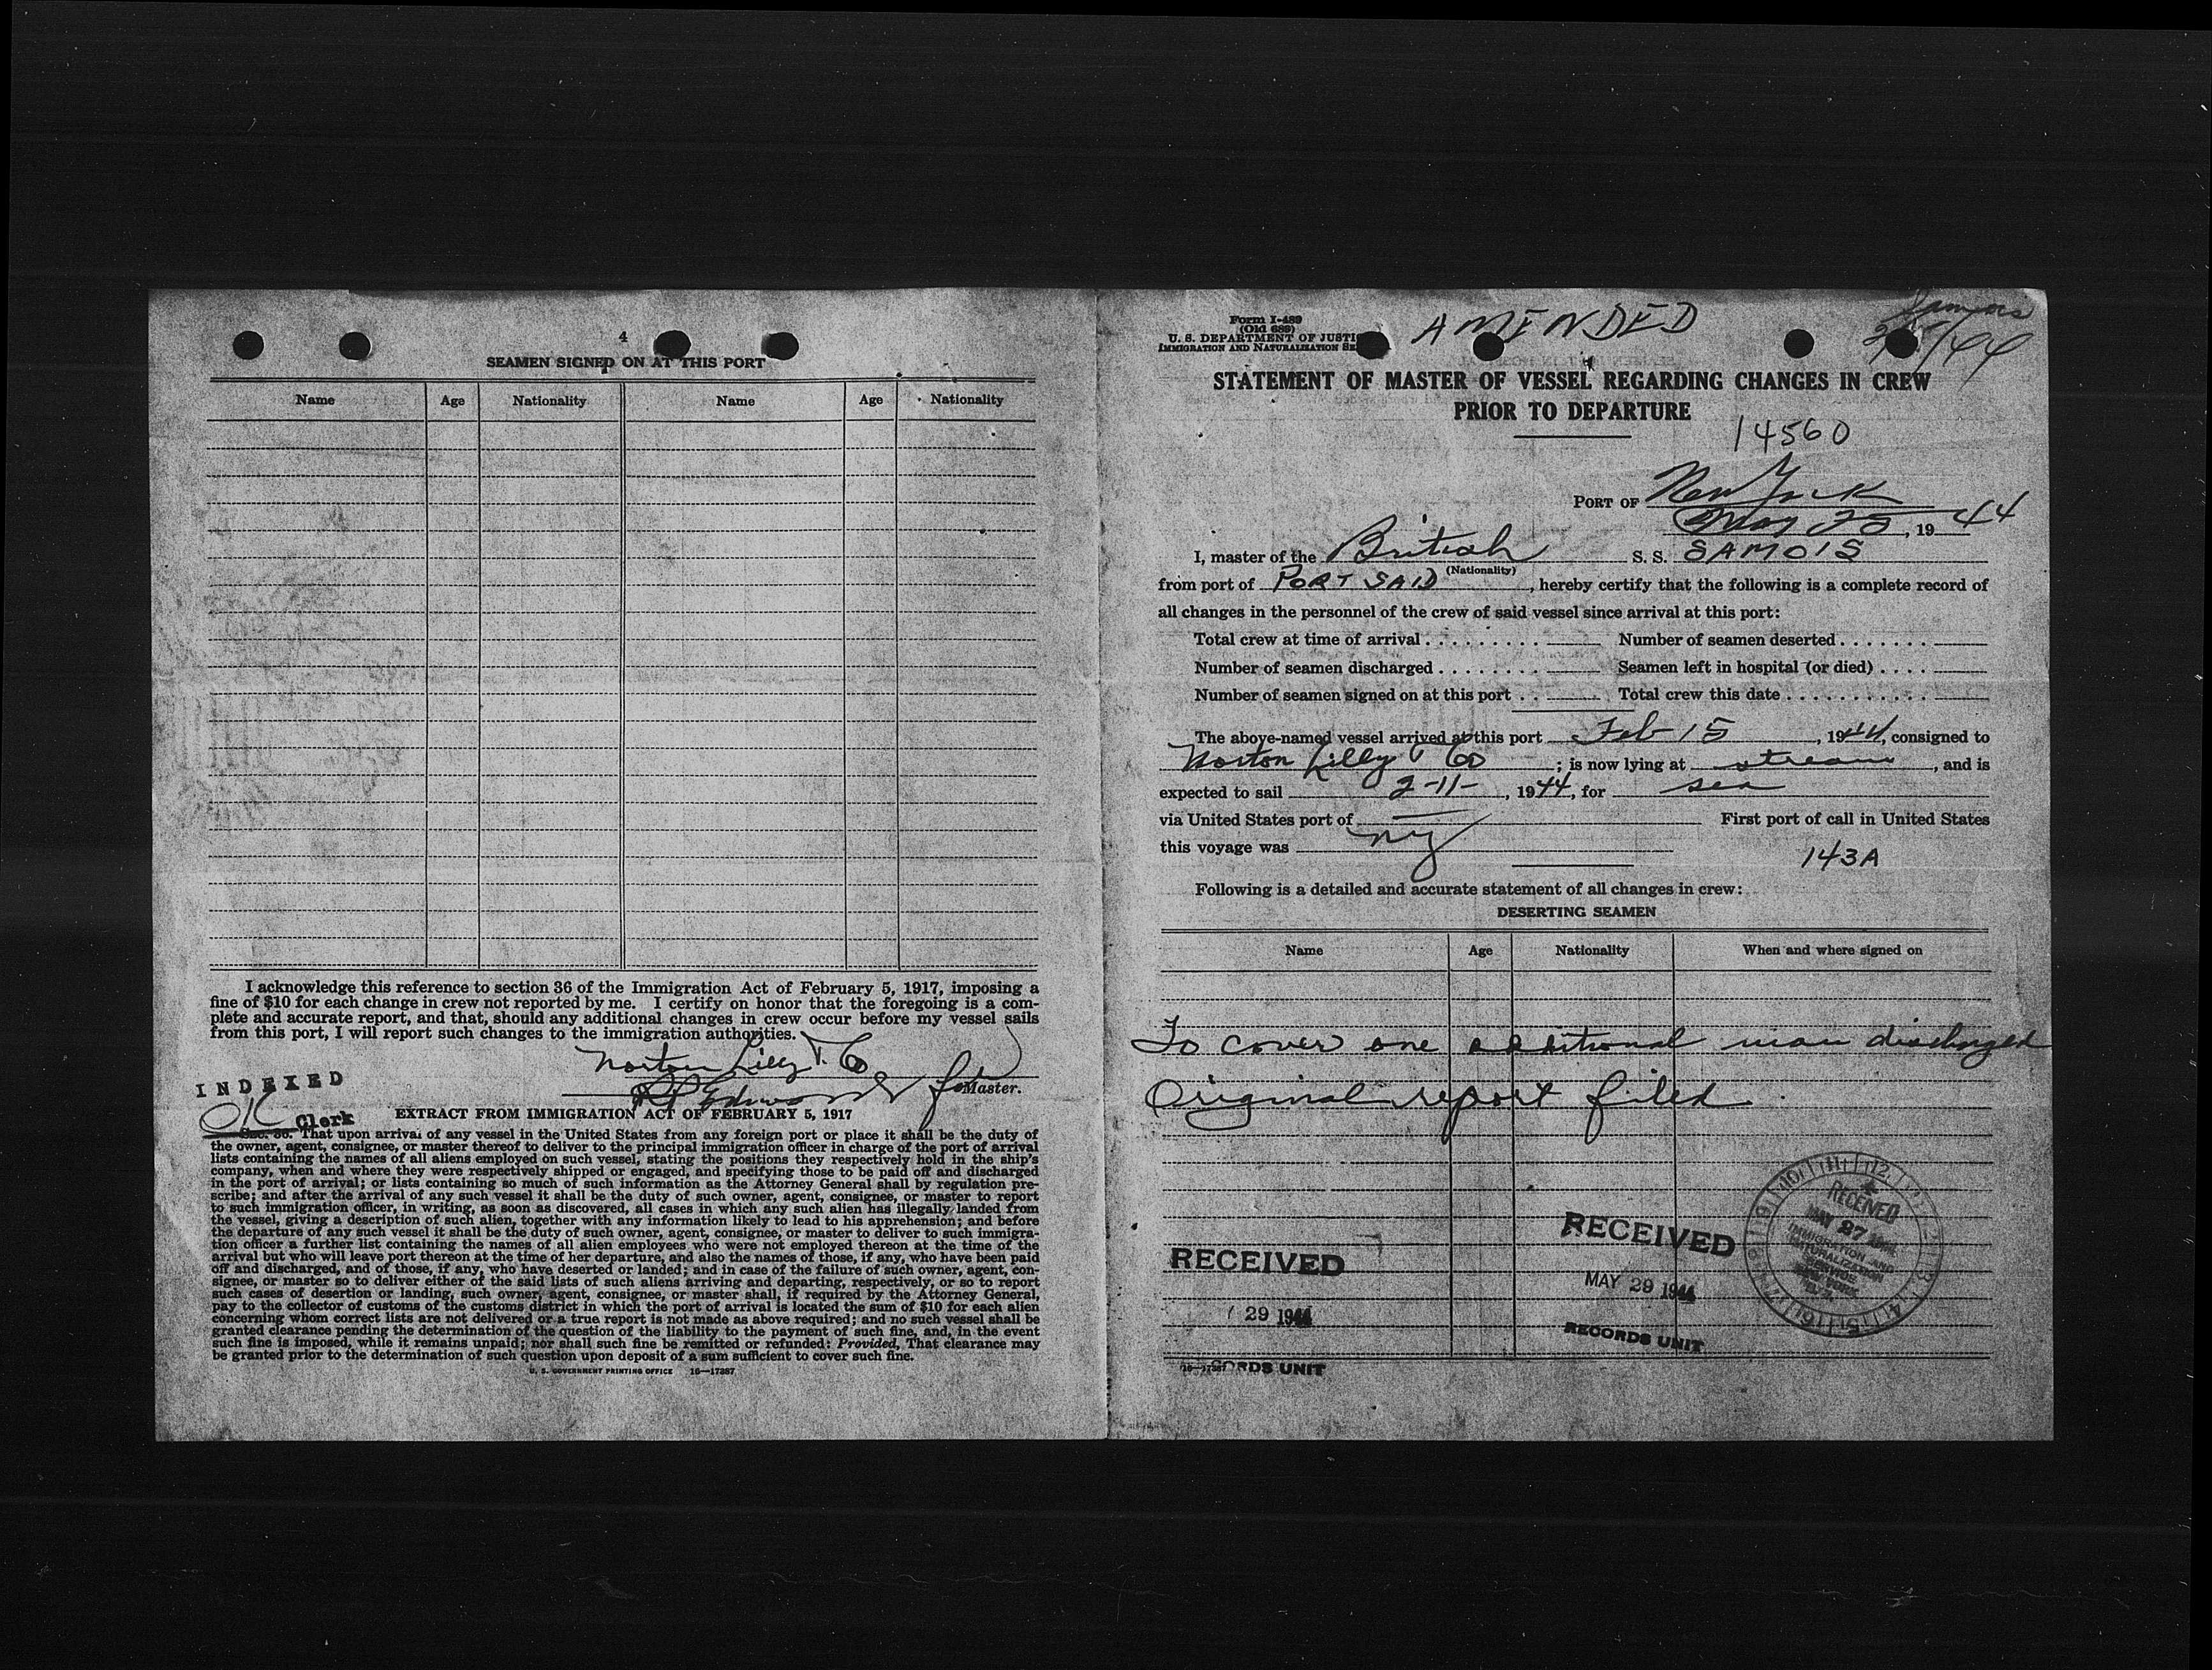 4
SEAMEN SIGNED ON AT THIS PORT
Name Age Nationality Name Age Nationality
I acknowledge this reference to section 36 of the Immigration Act of February 5, 1917, imposing a
fine of $10 for each change in crew not reported by me. I certify on honor that the foregoing is a com-
plete and accurate report, and that, should any additional changes in crew occur before my vessel sails
from this port, I will report such changes to the immigration authorities.
Norton Lilly & Co
Edwards for Master.
INDEXED
OK Clerk
EXTRACT FROM IMMIGRATION ACT OF FEBRUARY 5, 1917
Sec. 36. That upon arrival of any vessel in the United States from any foreign port or place it shall be the duty of
the owner, agent, consignee, or master thereof to deliver to the principal immigration officer in charge of the port of arrival
lists containing the names of all aliens employed on such vessel, stating the positions they respectively hold in the ship's
company, when and where they were respectively shipped or engaged, and specifying those to be paid off and discharged
in the port of arrival; or lists containing so much of such information as the Attorney General shall by regulation pre-
scribe; and after the arrival of any such vessel it shall be the duty of such owner, agent, consignee, or master to report
to such immigration officer, in writing, as soon as discovered, all cases in which any such alien has illegally landed from
the vessel, giving a description of such alien, together with any information likely to lead to his apprehension; and before
the departure of any such vessel it shall be the duty of such owner, agent, consignee, or master to deliver to such immigra-
tion officer a further list containing the names of all alien employees who were not employed thereon at the time of the
arrival but who will leave port thereon at the time of her departure, and also the names of those, if any, who have been paid
off and discharged, and of those, if any, who have deserted or landed; and in case of the failure of such owner, agent, con-
signee, or master so to deliver either of the said lists of such aliens arriving and departing, respectively, or so to report
such cases of desertion or landing, such owner, agent, consignee, or master shall, if required by the Attorney General,
pay to the collector of customs of the customs district in which the port of arrival is located the sum of $10 for each alien
concerning whom correct lists are not delivered or a true report is not made as above required; and no such vessel shall be
granted clearance pending the determination of the question of the liability to the payment of such fine, and, in the event
such fine is imposed, while it remains unpaid; nor shall such fine be remitted or refunded: Provided, That clearance may
be granted prior to the determination of such question upon deposit of a sum sufficient to cover such fine.
U. S. GOVERNMENT PRINTING OFFICE 16—17387
Form I-489
(Old 689)
U. S. DEPARTMENT OF JUSTI
IMMIGRATION AND NATURALIZATION SE
AMENDED
Samois
2/15/44
STATEMENT OF MASTER OF VESSEL REGARDING CHANGES IN CREW
PRIOR TO DEPARTURE
14560
PORT OF New York
May 25, 1944
I, master of the British S. S. SAMOIS
(Nationality)
from port of PORT SAID, hereby certify that the following is a complete record of
all changes in the personnel of the crew of said vessel since arrival at this port:
Total crew at time of arrival . . . . . . . . . Number of seamen deserted . . . . . . .
Number of seamen discharged . . . . . . . . Seamen left in hospital (or died) . . . .
Number of seamen signed on at this port . . Total crew this date . . . . . . . . . . .
The above-named vessel arrived at this port Feb 15, 1944, consigned to
Norton Lilly & Co; is now lying at stream, and is
expected to sail 2-11-, 1944, for sea
via United States port of — First port of call in United States
this voyage was NY
143A
Following is a detailed and accurate statement of all changes in crew:
DESERTING SEAMEN
Name Age Nationality When and where signed on
To cover one additional man discharged
Original report filed
RECEIVED
29 1944
RECORDS UNIT
16—17387
RECEIVED
MAY 29 1944
RECORDS UNIT
RECEIVED
MAY 27 1944
IMMIGRATION AND
NATURALIZATION
SERVICE
NEW YORK
N. Y.